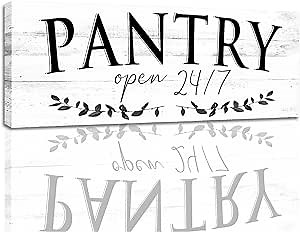 PANTRY
open 24/7